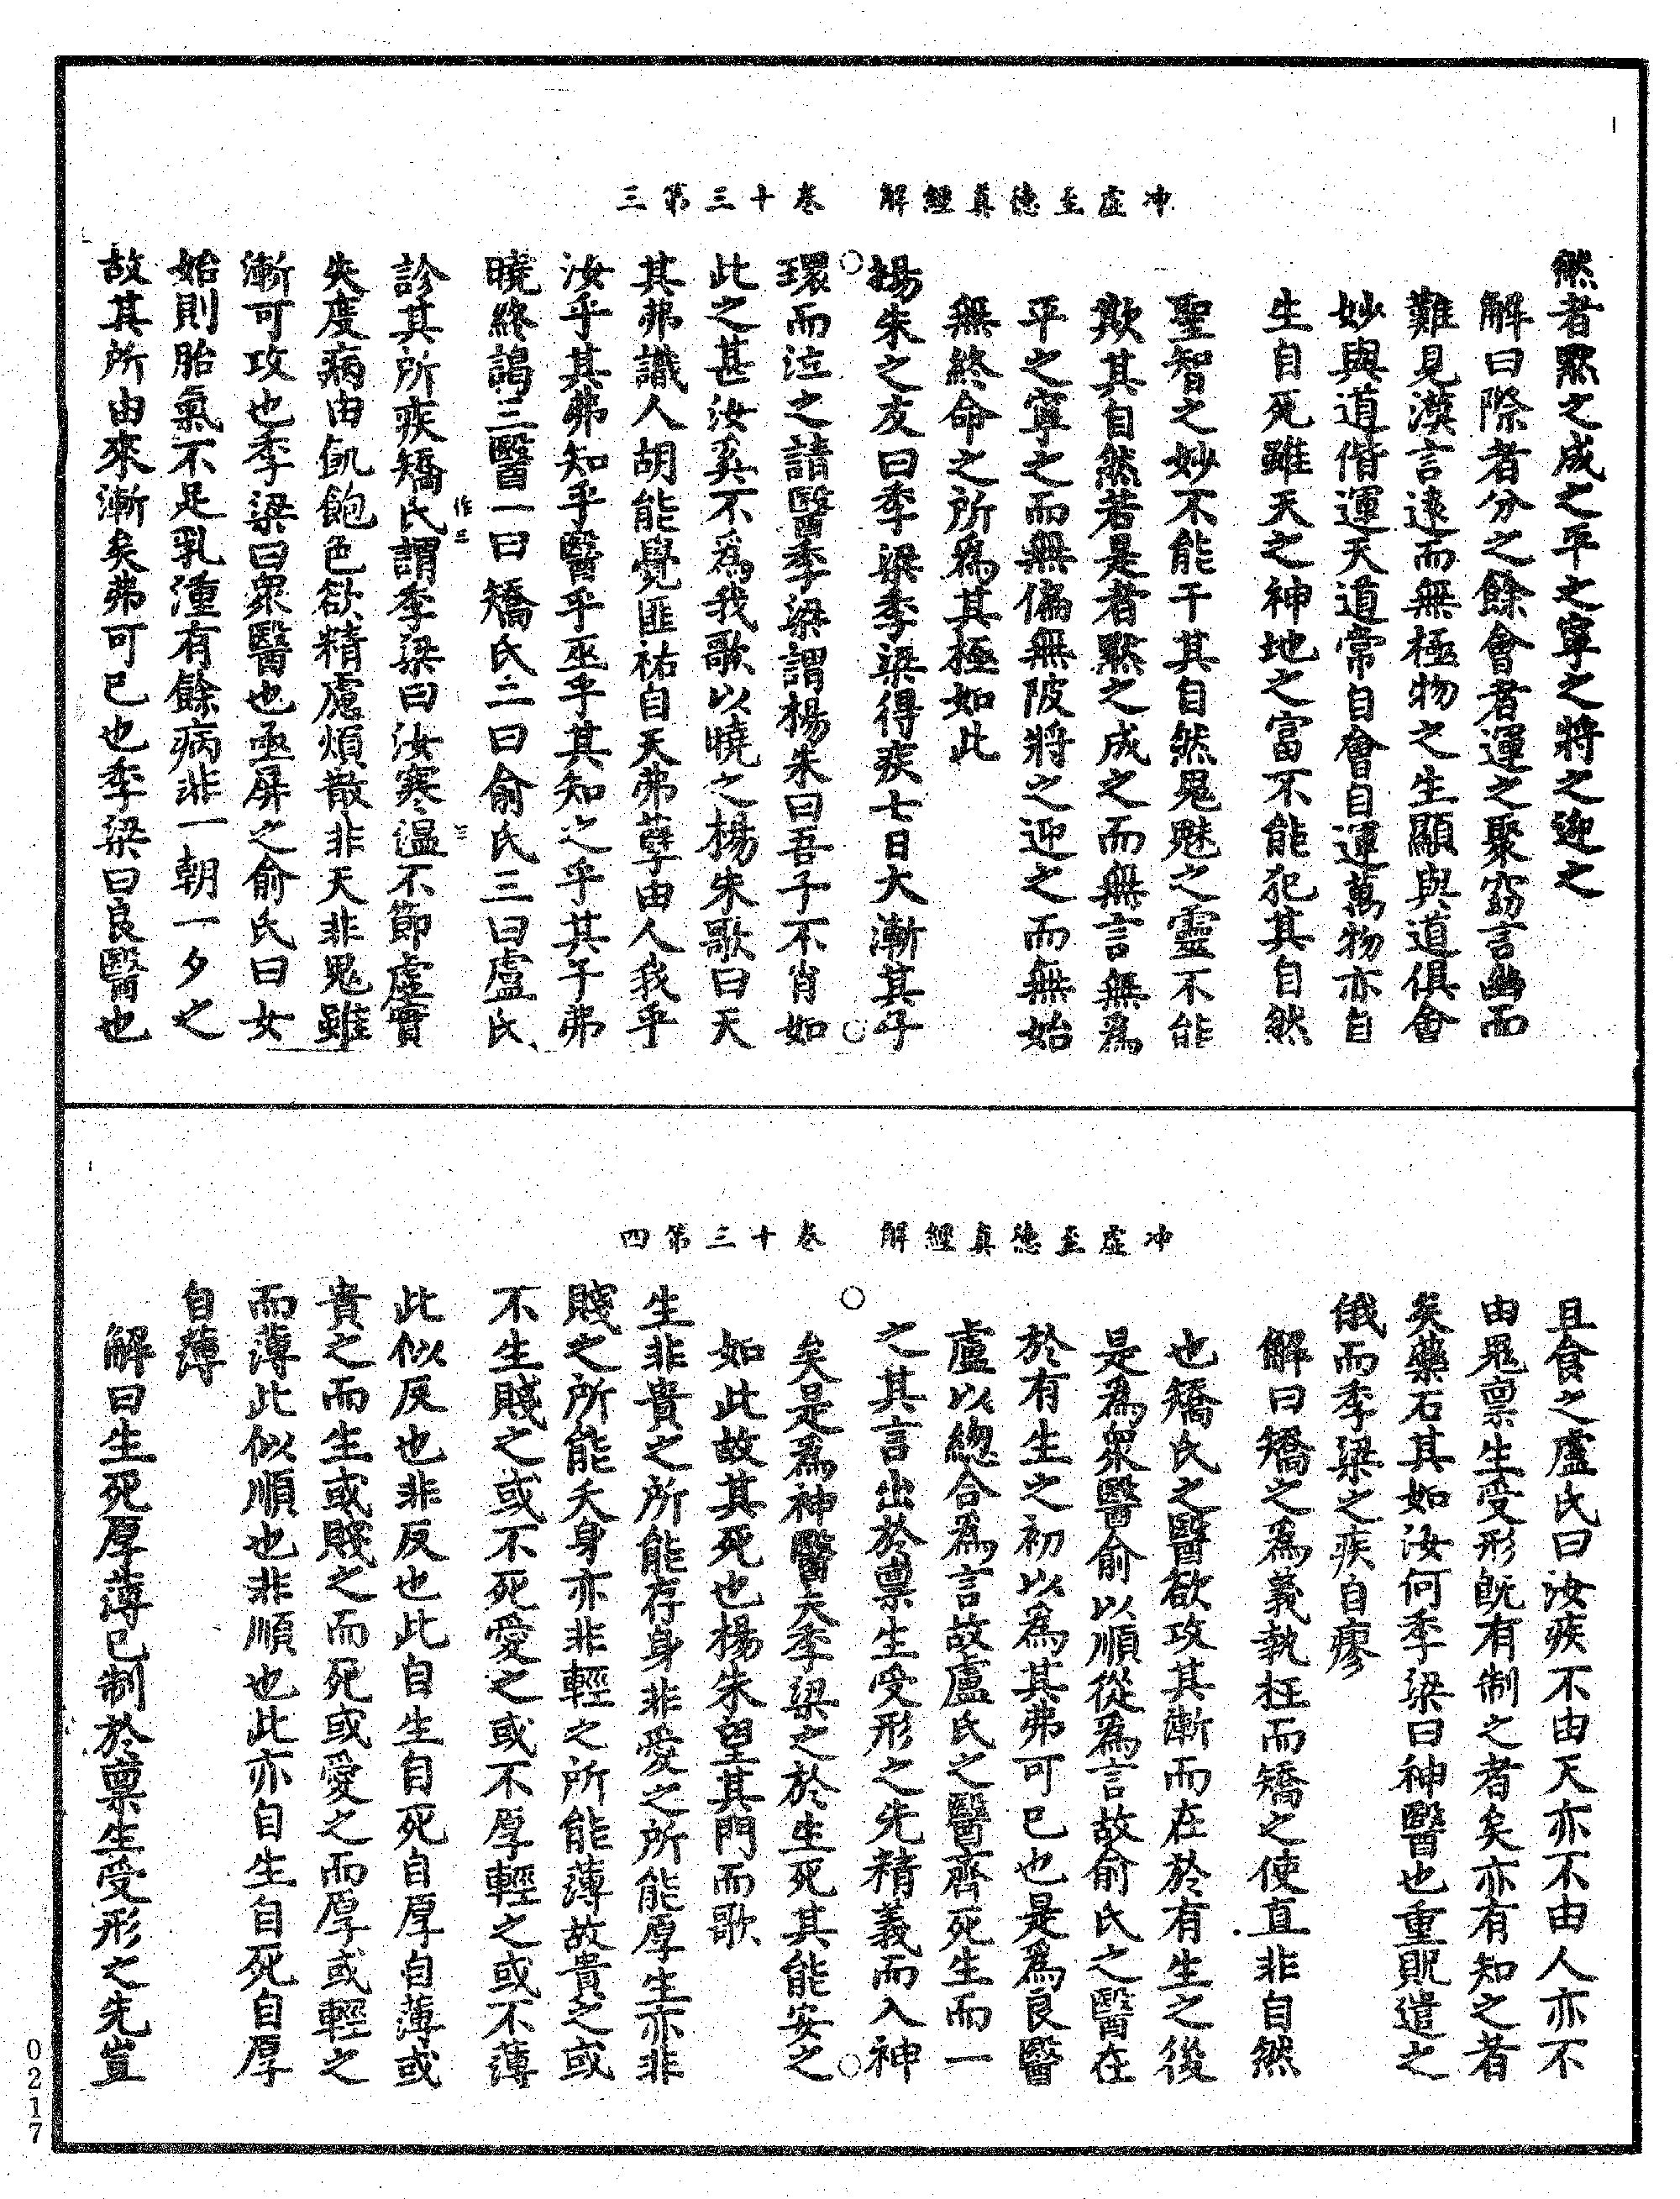 冲虛至德真經解　卷十三第三
然者默之成之平之寧之將之迎之
解曰際者分之餘會者運之聚窈言幽而
難見漠言遠而無極物之生顯與道俱會
妙與道偕運天道常自會自運萬物亦自
生自死雖天之神地之富不能犯其自然
聖智之妙不能干其自然鬼魅之靈不能
欺其自然若是者默之成之而無言無為
平之寧之而無偏無陂將之迎之而無始
無終命之所為其極如此
楊朱之友曰季梁季梁得疾七日大漸其子
環而泣之請醫季梁謂楊朱曰吾子不肖如
此之甚汝奚不為我歌以曉之楊朱歌曰天
其弗識人胡能覺匪祐自天弗孽由人我乎
汝乎其弗知乎醫乎巫乎其知之乎其子弗
曉終謁三醫一曰矯氏二曰俞氏三曰盧氏
診其所疾矯氏謂季梁曰汝寒溫不節虛實
失度病由飢飽色欲精慮煩散非天非鬼雖
漸可攻也季梁曰眾醫也亟屏之俞氏曰女
始則胎氣不足乳湩有餘病非一朝一夕之
故其所由來漸矣弗可已也季梁曰良醫也
冲虛至德真經解　卷十三第四
且食之盧氏曰汝疾不由天亦不由人亦不
由鬼稟生受形既有制之者矣亦有知之者
矣藥石其如汝何季梁曰神醫也重貺遣之
俄而季梁之疾自瘳
解曰矯之為義執枉而矯之使直非自然
也矯氏之醫欲攻其漸而在於有生之後
是為眾醫俞以順從為言故俞氏之醫在
於有生之初以為其弗可已也是為良醫
盧以總合為言故盧氏之醫齊死生而一
之其言出於稟生受形之先精義而入神
矣是為神醫夫季梁之於生死其能安之
如此故其死也楊朱望其門而歌
生非貴之所能存身非愛之所能厚生亦非
賤之所能夭身亦非輕之所能薄故貴之或
不生賤之或不死愛之或不厚輕之或不薄
此似反也非反也此自生自死自厚自薄或
貴之而生或賤之而死或愛之而厚或輕之
而薄此似順也非順也此亦自生自死自厚
自薄
解曰生死厚薄已制於稟生受形之先豈
0217